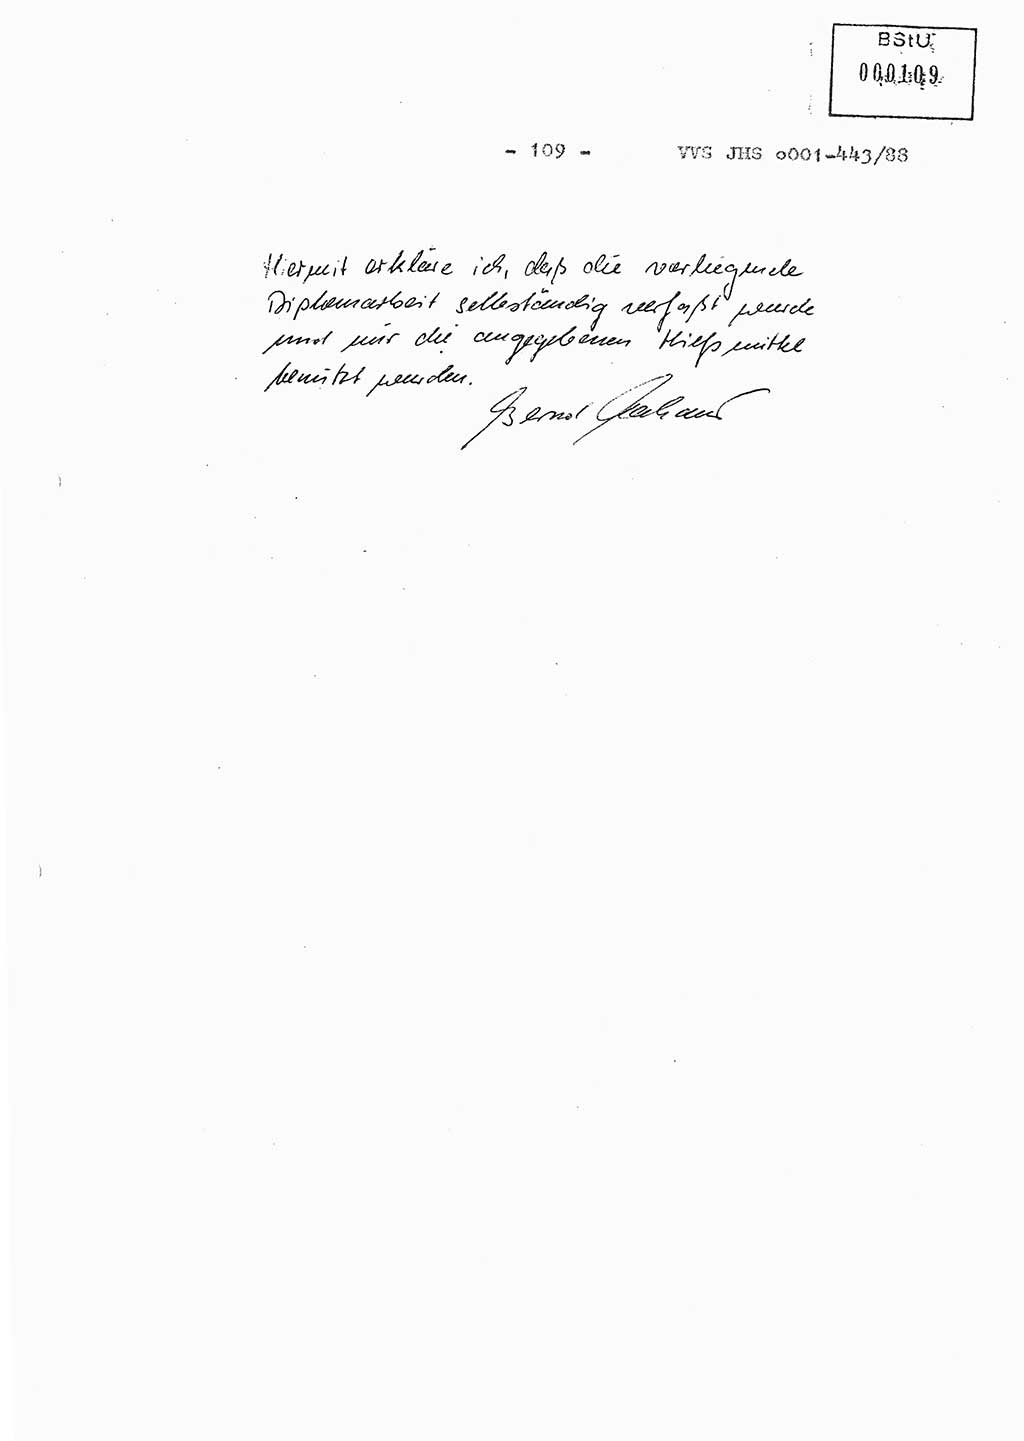 BStU
000109
- 109 - VVS JHS o001-443/88
Hiermit erkläre ich, daß die vorliegende
Diplomarbeit selbständig verfaßt wurde
und nur die angegebenen Hilfsmittel
benutzt wurden.
Bernd